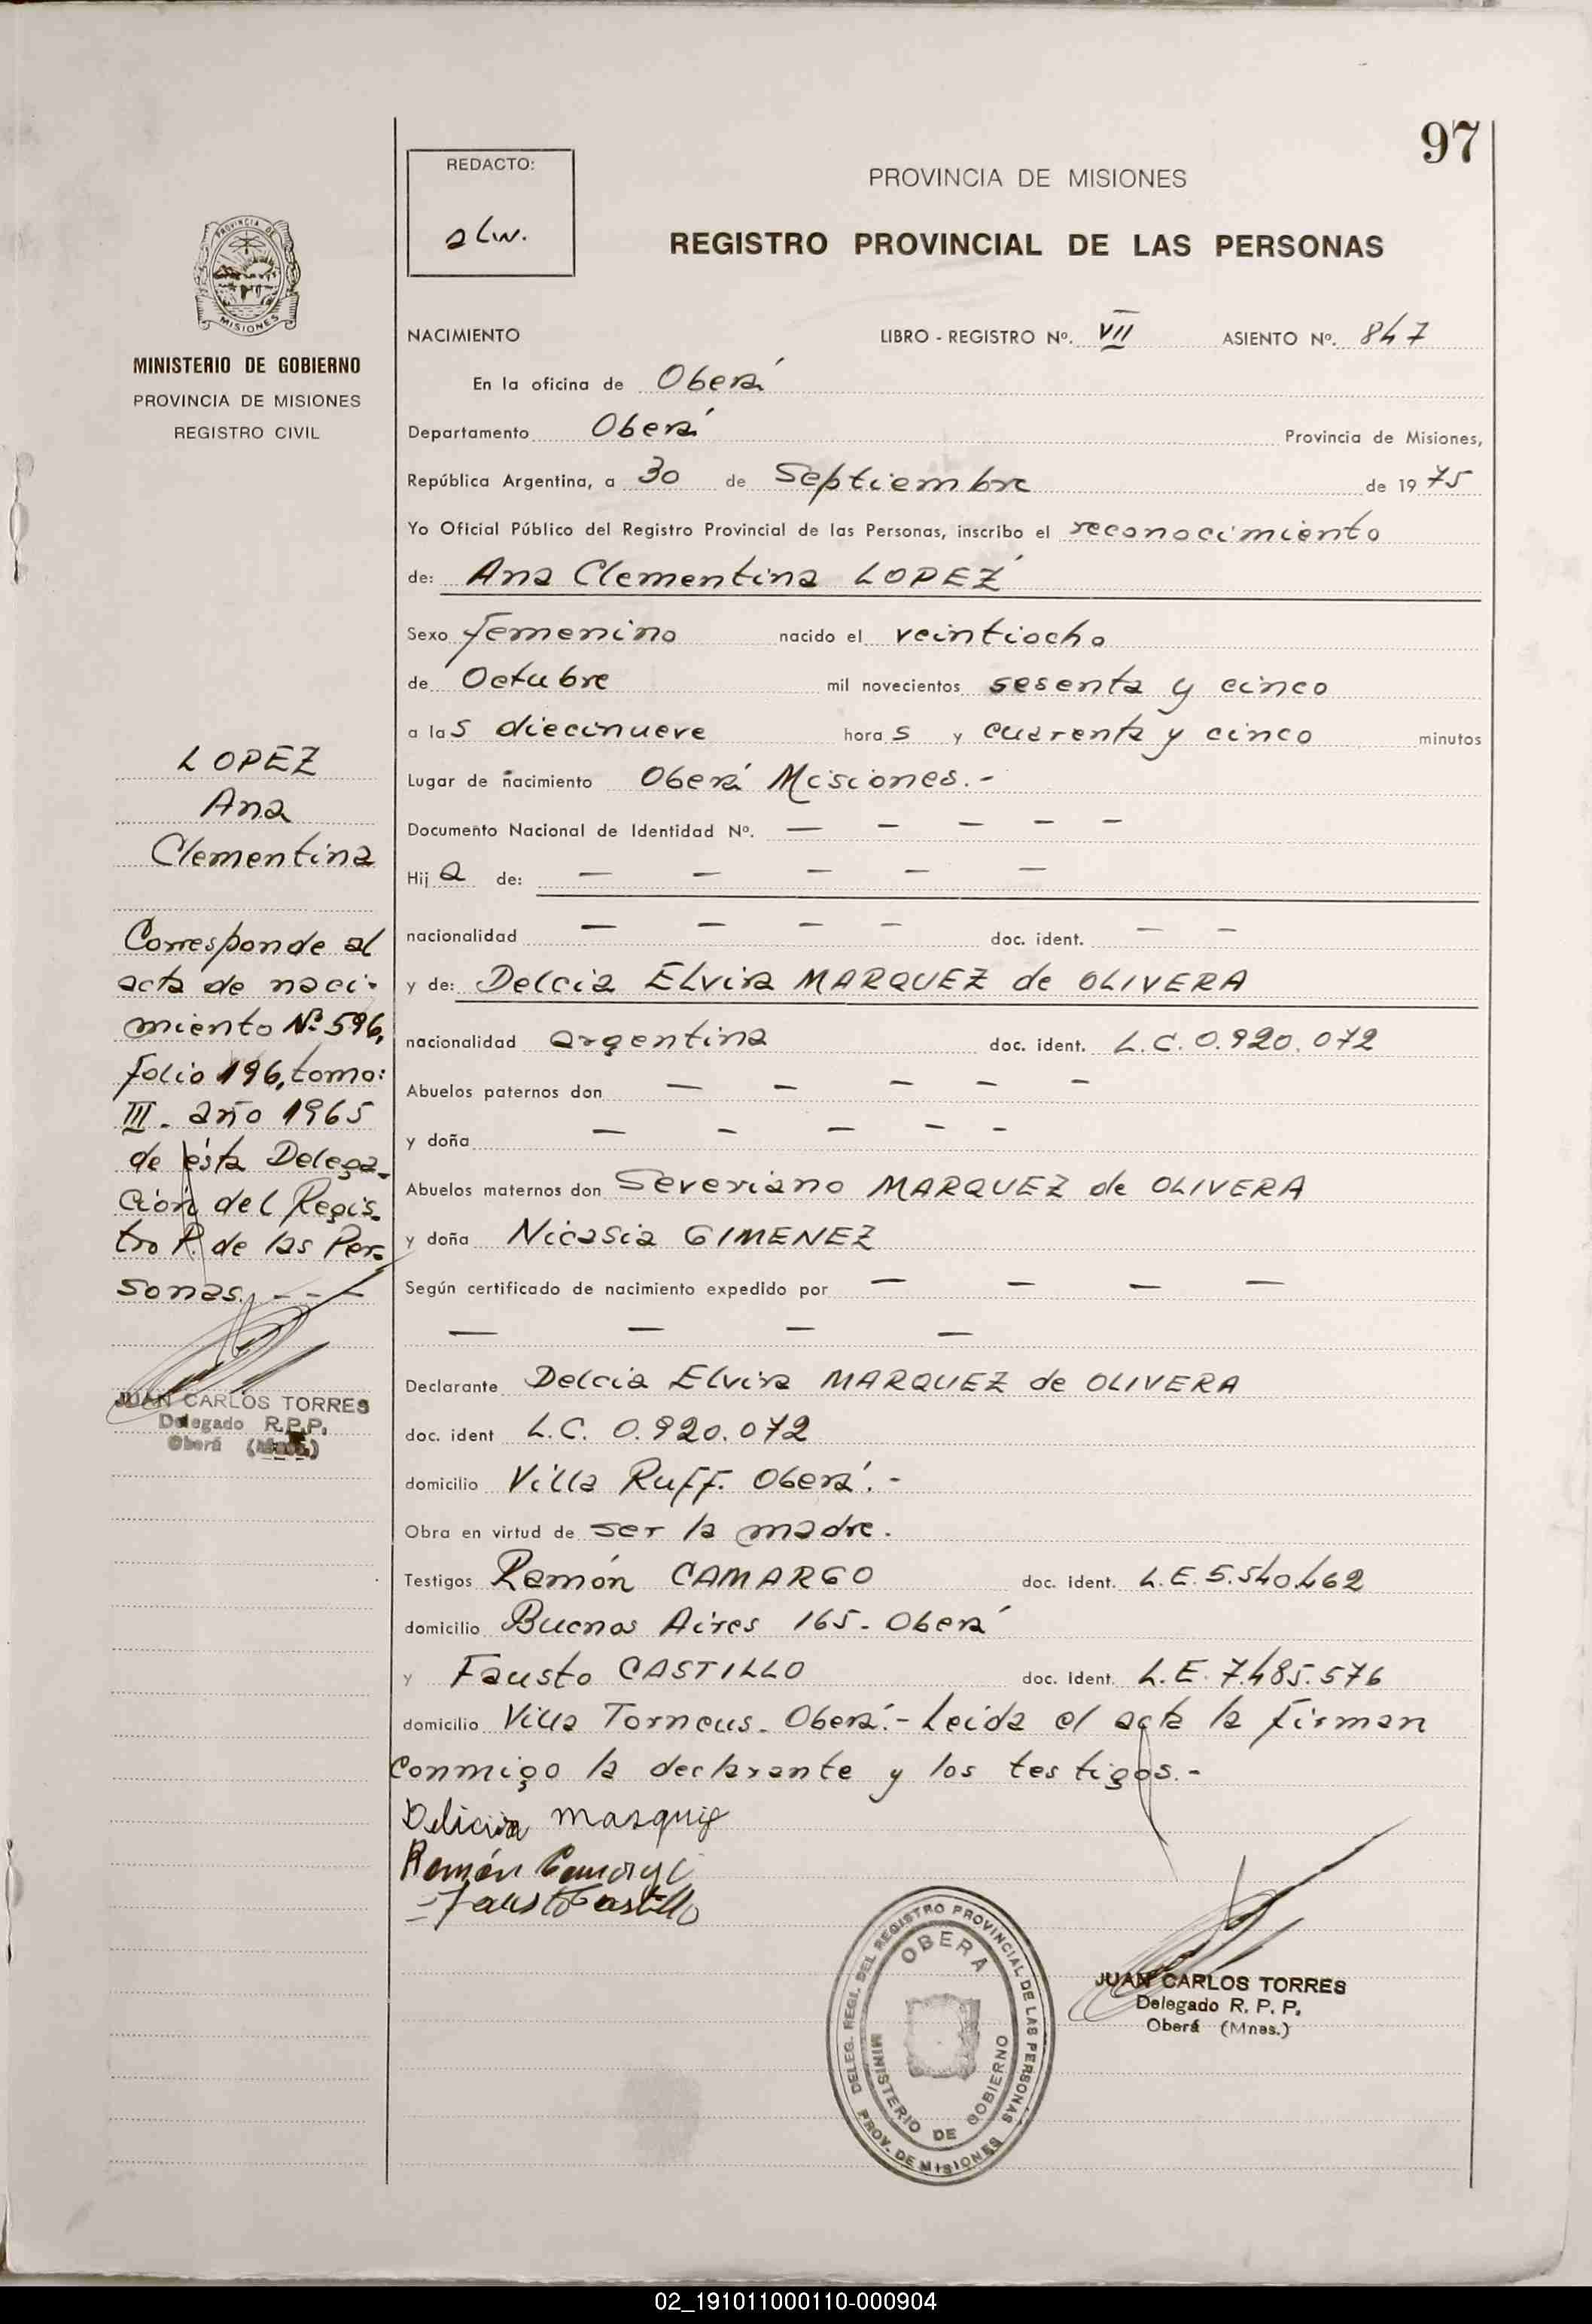 97
REDACTO:
PROVINCIA DE MISIONES
REGISTRO PROVINCIAL DE LAS PERSONAS
PROVINCIA DE
MISIONES
MINISTERIO DE GOBIERNO
PROVINCIA DE MISIONES
REGISTRO CIVIL
NACIMIENTO LIBRO - REGISTRO Nº. VII ASIENTO Nº. 847
En la oficina de Oberá
Departamento Oberá Provincia de Misiones,
República Argentina, a 30 de Septiembre de 1975
Yo Oficial Público del Registro Provincial de las Personas, inscribo el reconocimiento
de: Ana Clementina LOPEZ
Sexo femenino nacido el veintiocho
de Octubre mil novecientos sesenta y cinco
a las diecinueve horas y cuarenta y cinco minutos
Lugar de nacimiento Oberá Misiones.-
Documento Nacional de Identidad Nº. — — — — —
Hija de: — — — — —
nacionalidad — — — — doc. ident. — —
y de: Delcia Elvira MARQUEZ de OLIVERA
nacionalidad argentina doc. ident. L.C. 0.920.072
Abuelos paternos don — — — — —
y doña — — — — —
Abuelos maternos don Severiano MARQUEZ de OLIVERA
y doña Nicasia GIMENEZ
Según certificado de nacimiento expedido por — — — —
— — — —
Declarante Delcia Elvira MARQUEZ de OLIVERA
doc. ident L.C. 0.920.072
domicilio Villa Ruff. Oberá.-
Obra en virtud de ser la madre.
Testigos Ramón CAMARGO doc. ident. L.E. 5.540.462
domicilio Buenos Aires 165- Oberá
y Fausto CASTILLO doc. ident. L.E. 7.485.576
domicilio Villa Torneus. Oberá.- Leida el acta la firman
conmigo la declarante y los testigos.-
Ramón
Fausto Castillo
LOPEZ
Ana
Clementina
Corresponde al
acta de naci-
miento Nº 596,
folio 196, tomo:
III. año 1965
de ésta Delega-
ción del Regis-
tro P. de las Per-
sonas. - - -
JUAN CARLOS TORRES
Delegado R.P.P.
Oberá (Mnes.)
DELEG. REGI. DEL REGISTRO PROVINCIAL DE LAS PERSONAS
OBERA
MINISTERIO DE GOBIERNO
PROV. DE MISIONES
JUAN CARLOS TORRES
Delegado R. P. P.
Oberá (Mnes.)
02_191011000110-000904